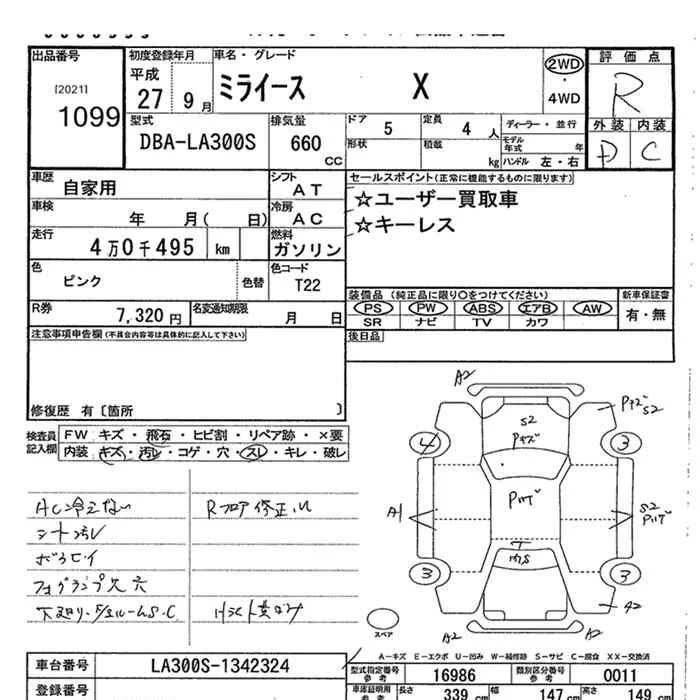 出品番号
[2021]
1099
初度登録年月
平成
27 9 月
車名・グレード
ミライース X
2WD
・
4WD
評価点
R
外装 内装
D C
型式
DBA-LA300S
排気量
660
CC
ドア 5
定員 4 人
ディーラー・並行
形状
積載 kg
モデル年式 年
ハンドル 左・右
車歴
自家用
シフト
AT
車検
年 月( 日)
冷房
AC
走行
4万0千495 km
燃料
ガソリン
色
ピンク
色替
色コード
T22
R券
7,320 円
名変通知期限
月 日
セールスポイント(正常に機能するものに限ります)
☆ユーザー買取車
☆キーレス
装備品(純正品に限り○をつけてください)
新車保証書
PS PW ABS エアB AW
有・無
SR ナビ TV カワ
後日品
注意事項申告欄(不具合内容等は具体的に記入して下さい)
修復歴 有〔箇所 〕
検査員
記入欄
FW キズ・飛石・ヒビ割・リペア跡・×要
内装 キズ・汚レ・コゲ・穴・スレ・キレ・破レ
AC冷えない
シート汚レ
フォグランプ欠 穴
Rフロア修正
A2
S2
Pキズ
Pキズ
S2
4
3
A1
S2
3
3
A2
A2
A2
スペア
A-キズ E-エクボ U-凹み W-補修跡 S-サビ C-腐食 XX-交換済
車台番号
LA300S-1342324
型式指定番号
参考
16986
類別区分番号
参考
0011
登録番号
車庫証明用
参考
長さ 339 cm
幅 147 cm
高さ 149 cm